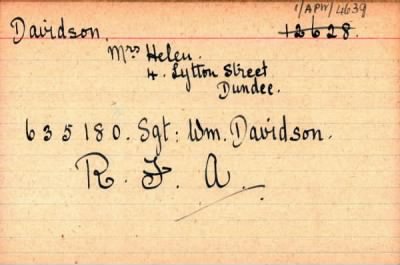 1/APW/4639
Davidson. 12628.
Mrs Helen.
4. Lytton Street
Dundee.
635180. Sgt: Wm. Davidson.
R. F. A.